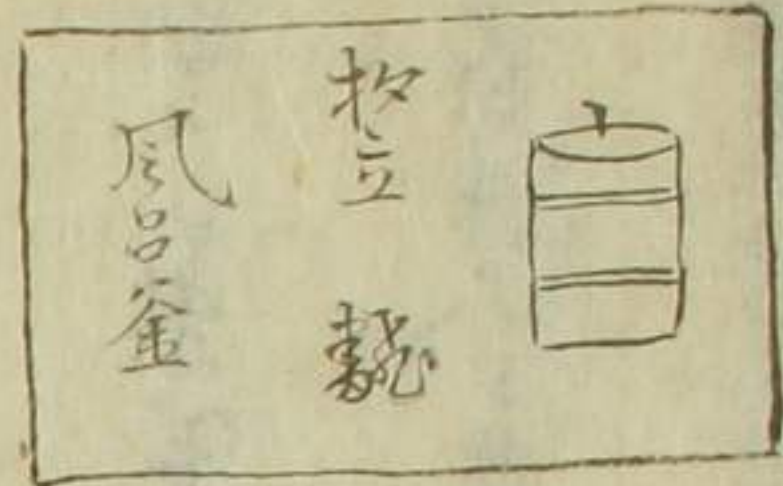 杓立
風呂釜